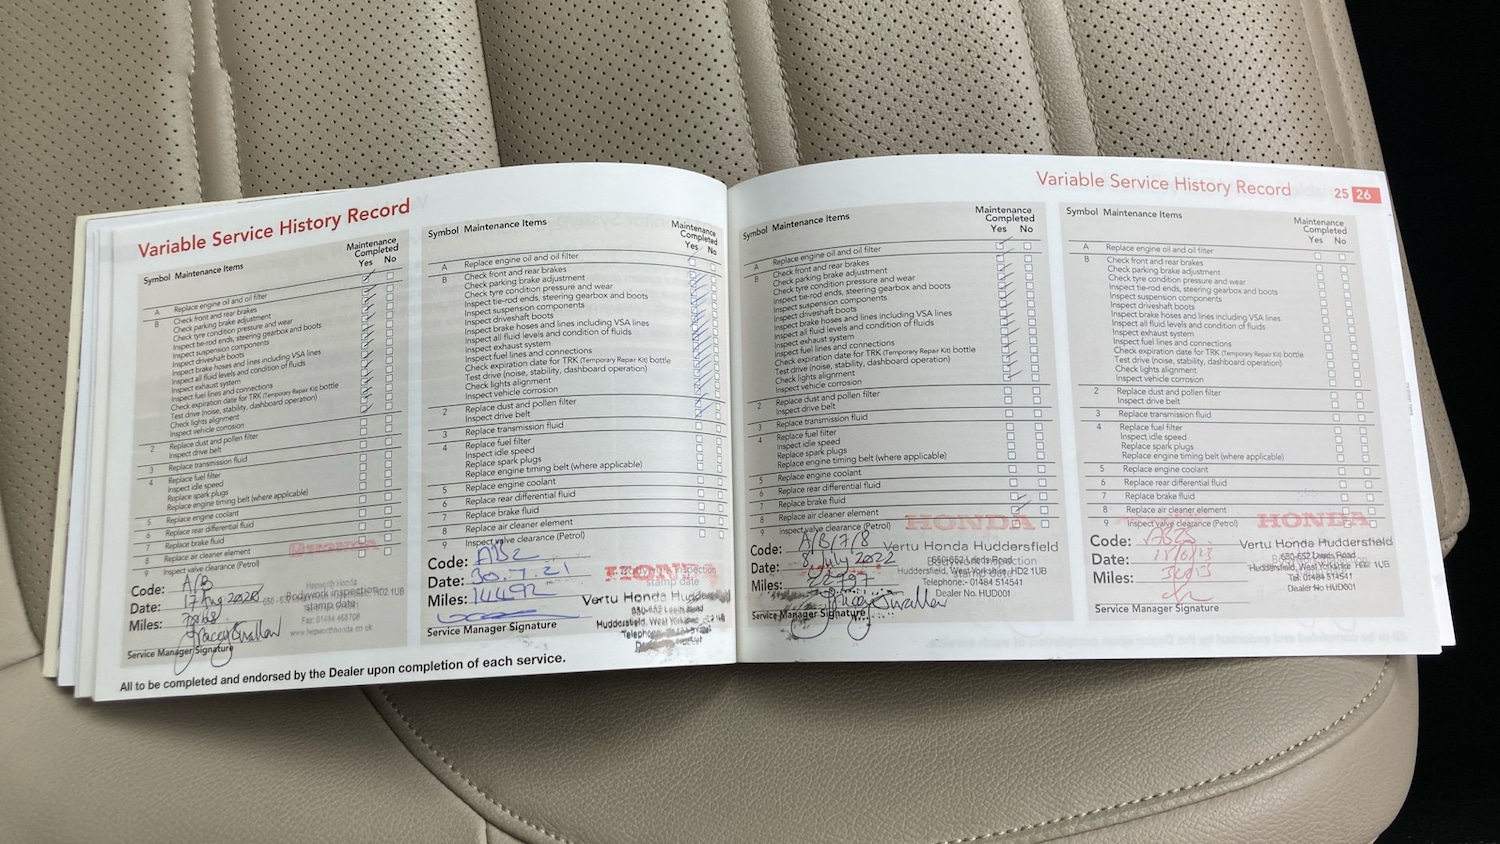 Variable Service History Record
Symbol Maintenance Items
Maintenance
Completed
Yes No
A Replace engine oil and oil filter
B Check front and rear brakes
Check parking brake adjustment
Check tyre condition pressure and wear
Inspect tie-rod ends, steering gearbox and boots
Inspect suspension components
Inspect driveshaft boots
Inspect brake hoses and lines including VSA lines
Inspect all fluid levels and condition of fluids
Inspect exhaust system
Inspect fuel lines and connections
Check expiration date for TRK (Temporary Repair Kit) bottle
Test drive (noise, stability, dashboard operation)
Check lights alignment
Inspect vehicle corrosion
2 Replace dust and pollen filter
Inspect drive belt
3 Replace transmission fluid
4 Replace fuel filter
Inspect idle speed
Replace spark plugs
Replace engine timing belt (where applicable)
5 Replace engine coolant
6 Replace rear differential fluid
7 Replace brake fluid
8 Replace air cleaner element
9 Inspect valve clearance (Petrol)
Code: A/B
Date: 17 Aug 2020
Miles:
Service Manager Signature
Hepworth Honda
Bodywork inspection
stamp date
Fax: 01484 468708
www.hepworthhonda.co.uk
Symbol Maintenance Items
Maintenance
Completed
Yes No
A Replace engine oil and oil filter
B Check front and rear brakes
Check parking brake adjustment
Check tyre condition pressure and wear
Inspect tie-rod ends, steering gearbox and boots
Inspect suspension components
Inspect driveshaft boots
Inspect brake hoses and lines including VSA lines
Inspect all fluid levels and condition of fluids
Inspect exhaust system
Inspect fuel lines and connections
Check expiration date for TRK (Temporary Repair Kit) bottle
Test drive (noise, stability, dashboard operation)
Check lights alignment
Inspect vehicle corrosion
2 Replace dust and pollen filter
Inspect drive belt
3 Replace transmission fluid
4 Replace fuel filter
Inspect idle speed
Replace spark plugs
Replace engine timing belt (where applicable)
5 Replace engine coolant
6 Replace rear differential fluid
7 Replace brake fluid
8 Replace air cleaner element
9 Inspect valve clearance (Petrol)
Code: A/B2
Date: 30.7.21
Miles: 14492
Service Manager Signature
HONDA
stamp date
Vertu Honda
650-652 Leeds Road
Huddersfield, West Yorkshire
All to be completed and endorsed by the Dealer upon completion of each service.
Variable Service History Record 25 26
Symbol Maintenance Items
Maintenance
Completed
Yes No
A Replace engine oil and oil filter
B Check front and rear brakes
Check parking brake adjustment
Check tyre condition pressure and wear
Inspect tie-rod ends, steering gearbox and boots
Inspect suspension components
Inspect driveshaft boots
Inspect brake hoses and lines including VSA lines
Inspect all fluid levels and condition of fluids
Inspect exhaust system
Inspect fuel lines and connections
Check expiration date for TRK (Temporary Repair Kit) bottle
Test drive (noise, stability, dashboard operation)
Check lights alignment
Inspect vehicle corrosion
2 Replace dust and pollen filter
Inspect drive belt
3 Replace transmission fluid
4 Replace fuel filter
Inspect idle speed
Replace spark plugs
Replace engine timing belt (where applicable)
5 Replace engine coolant
6 Replace rear differential fluid
7 Replace brake fluid
8 Replace air cleaner element
9 Inspect valve clearance (Petrol)
Code: A/B/7/8
Date: 8 July 2022
Miles: 22797
Service Manager Signature
HONDA
Vertu Honda Huddersfield
650-652 Leeds Road
Huddersfield, West Yorkshire, HD2 1UB
Telephone:- 01484 514541
Dealer No. HUD001
Symbol Maintenance Items
Maintenance
Completed
Yes No
A Replace engine oil and oil filter
B Check front and rear brakes
Check parking brake adjustment
Check tyre condition pressure and wear
Inspect tie-rod ends, steering gearbox and boots
Inspect suspension components
Inspect driveshaft boots
Inspect brake hoses and lines including VSA lines
Inspect all fluid levels and condition of fluids
Inspect exhaust system
Inspect fuel lines and connections
Check expiration date for TRK (Temporary Repair Kit) bottle
Test drive (noise, stability, dashboard operation)
Check lights alignment
Inspect vehicle corrosion
2 Replace dust and pollen filter
Inspect drive belt
3 Replace transmission fluid
4 Replace fuel filter
Inspect idle speed
Replace spark plugs
Replace engine timing belt (where applicable)
5 Replace engine coolant
6 Replace rear differential fluid
7 Replace brake fluid
8 Replace air cleaner element
9 Inspect valve clearance (Petrol)
Code:
Date:
Miles:
Service Manager Signature
HONDA
Vertu Honda Huddersfield
650-652 Leeds Road
Huddersfield, West Yorkshire HD2 1UB
Tel: 01484 514541
Dealer No HUD001